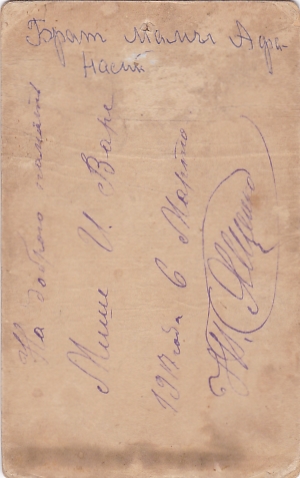 Брат мамы Афа-
насий
На добрую память
Мише И Варе
года 6 Марта